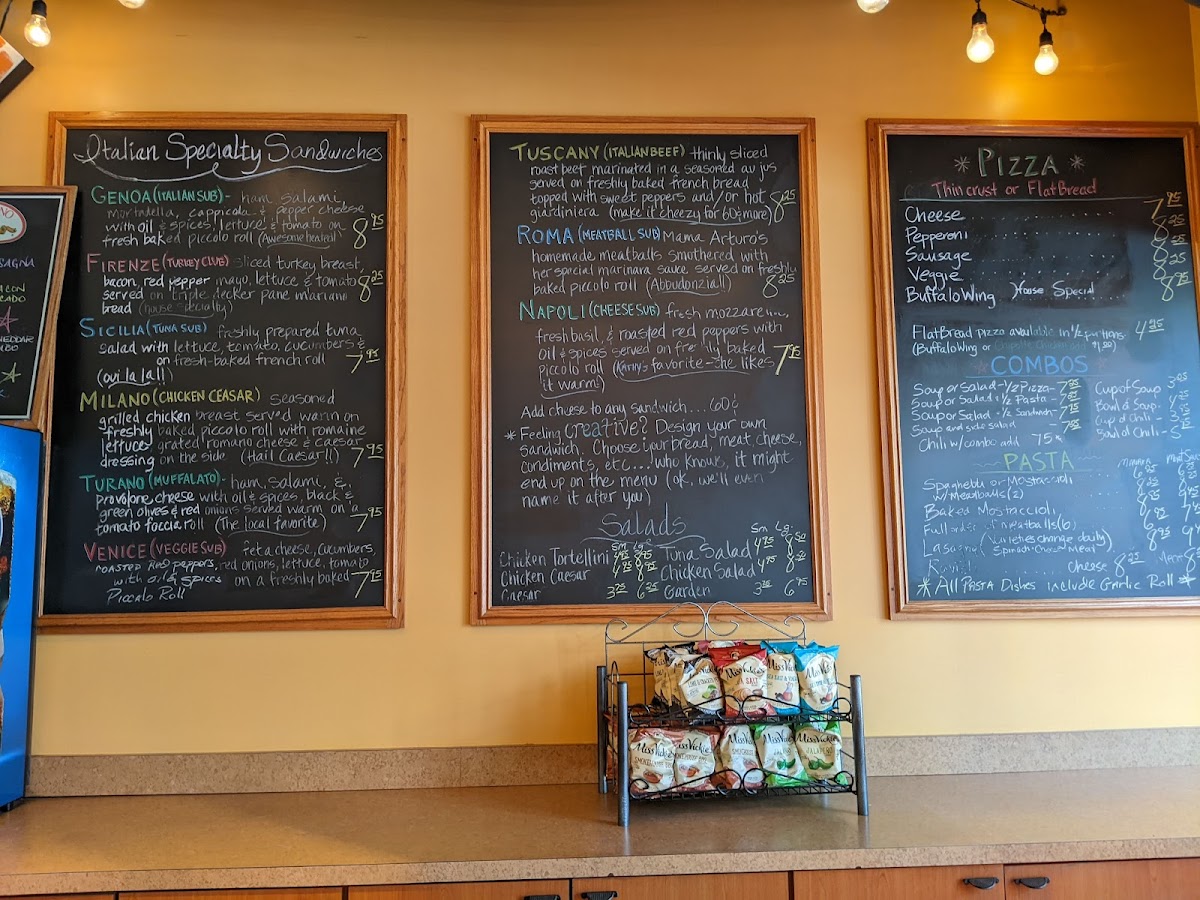 Italian Specialty Sandwiches
GENOA (ITALIAN SUB) - ham, salami,
mortadella, cappicola & pepper cheese
with oil & spices, lettuce & tomato on
fresh baked piccolo roll (Awesome hot too!) 8 95
FIRENZE (TURKEY CLUB) sliced turkey breast,
bacon, red pepper mayo, lettuce & tomato
served on triple decker pane mariano 8 25
bread (house specialty)
SICILIA (TUNA SUB) freshly prepared tuna
salad with lettuce, tomato, cucumbers &
on fresh-baked french roll 7 95
(oui la la!!)
MILANO (CHICKEN CEASAR) seasoned
grilled chicken breast served warm on
freshly baked piccolo roll with romaine
lettuce, grated romano cheese & caesar
dressing on the side (Hail Caesar!!) 7 95
TURANO (MUFFALATO) - ham, salami, &
provolone cheese with oil & spices, black &
green olives & red onions served warm on a
tomato foccia roll (The local favorite) 7 95
VENICE (VEGGIE SUB) feta cheese, cucumbers,
ROASTED RED peppers, red onions, lettuce, tomato
with oil & spices on a freshly baked 7 75
Piccalo Roll
TUSCANY (ITALIAN BEEF) thinly sliced
roast beef marinated in a seasoned au jus
served on freshly baked french bread
topped with sweet peppers and/or hot
giardiniera (make it cheezy for 60¢ more) 8 25
ROMA (MEATBALL SUB) Mama Arturo's
homemade meatballs smothered with
her special marinara sauce served on freshly
baked piccolo roll (Abbudonzia!!) 8 25
NAPOLI (CHEESE SUB) fresh mozzarella,
fresh basil, & roasted red peppers with
oil & spices served on freshly baked
piccolo roll (KATHY's favorite - she likes 7 95
it warm!)
Add cheese to any sandwich... 60¢
* Feeling creative? Design your own
sandwich. Choose your bread, meat, cheese,
condiments, etc... who knows, it might
end up on the menu (ok, we'll even
name it after you)
Salads
Sm Lg Sm Lg
Chicken Tortellini Tuna Salad
Chicken Caesar Chicken Salad
Caesar 3 25 6 25 Garden 6 95
* PIZZA *
Thin crust or FlatBread
Cheese 7 95
Pepperoni 8 25
Sausage 8 25
Veggie 8 25
Buffalo Wing House Special 8 25
FlatBread pizza available in 1/2 portions 4 95
(Buffalo Wing or Chipotle Chicken add $1.00)
COMBOS
Soup or Salad - 1/2 Pizza - 7 95 Cup of Soup
Soup or Salad - 1/2 Pasta - 7 95 Bowl of Soup
Soup or Salad - 1/2 Sandwich - 7 75 Cup of Chili
Soup and side salad - Bowl of Chili
Chili w/combo add 75¢
PASTA
Marinara Meat Sauce
Spaghetti or Mostaccioli
w/Meatballs (2)
Baked Mostaccioli
Full order of meatballs (6)
Lasagna (Varieties change daily)
Spinach-Cheese / Meat
Cheese 8 25
* All PASTA DISHES INCLUDE GARLIC ROLL *
SAGNA
BACON
CADO
CHEDDAR
MBO
MissVickie's
LIME & CRACKED PEPPER
MissVickie's
SEA SALT
MissVickie's
SEA SALT & VINEGAR
MissVickie's
SMOKEHOUSE BBQ
MissVickie's
SMOKEHOUSE BBQ
MissVickie's
SMOKEHOUSE
MissVickie's
JALAPEÑO
MissVickie's
JALAPEÑO